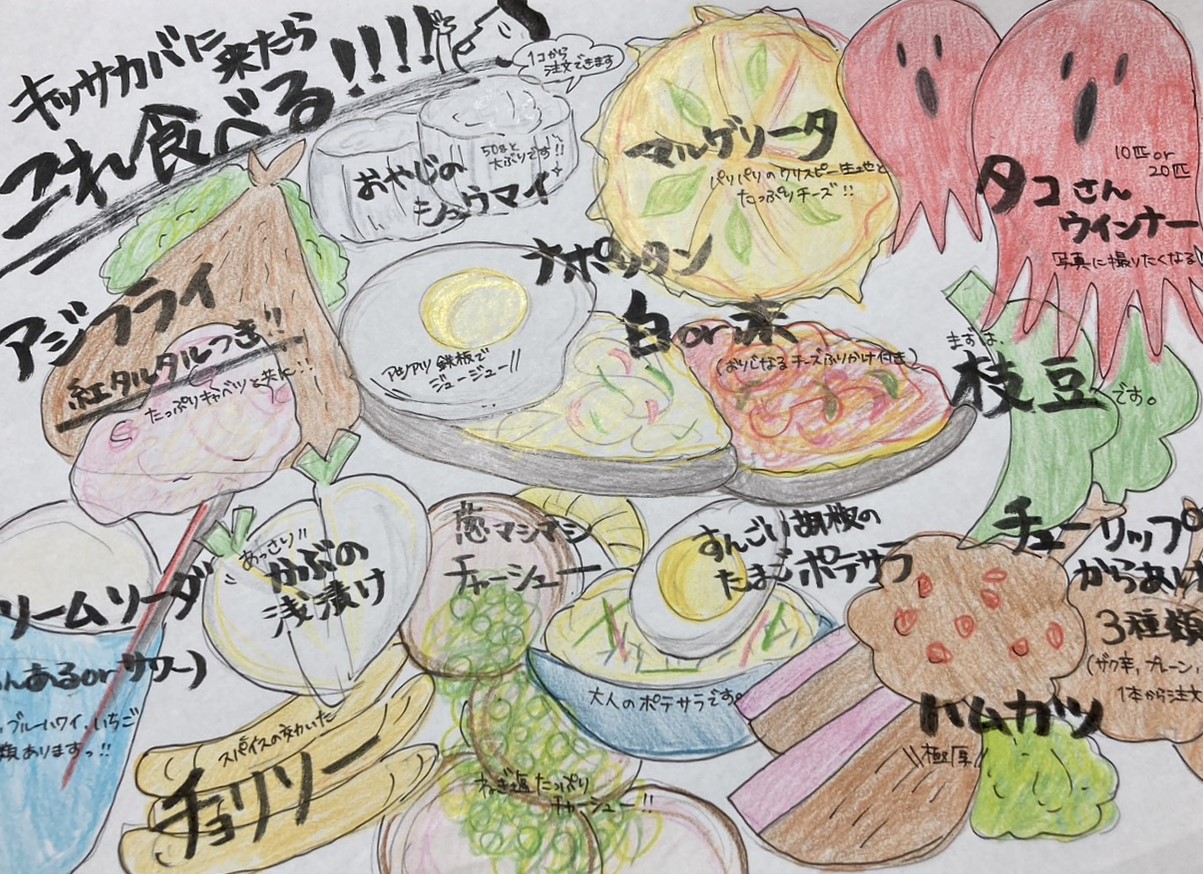 キッサカバに来たら
これ食べる!!!!
1コから
注文できます
おやじの
シュウマイ
50gと
大ぶりです!!
マルゲリータ
パリパリのクリスピー生地と
たっぷりチーズ!!
タコさん
ウインナー
10匹or
20匹
写真に撮りたくなる
アジフライ
紅タルタルつき!!
たっぷりキャベツと共に!!
ナポリタン
白or赤
アツアツ鉄板で
ジュージュー!!
(おりじなるチーズふりかけ付き)
まずは、
枝豆
です。
リームソーダ
んあるorサワー)
、ブルーハワイ、いちご
類ありますっ!!
あっさり!!
かぶの
浅漬け
葱マシマシ
チャーシュー
ねぎ塩たっぷり
チャーシュー!!
すんごり胡椒の
たまごポテサラ
大人のポテサラです。
チューリップ
からあげ
3種類
(ザク辛,プレーン,
1本から注文
スパイスの効いた
チョリソー
ハムカツ
極厚